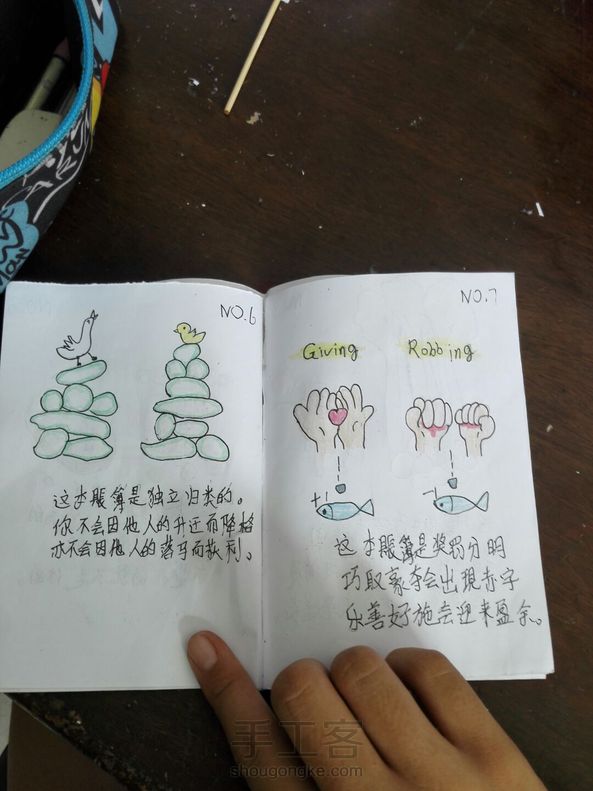 NO.6
这本账簿是独立归类的。
你不会因他人的升迁而降格
亦不会因他人的落马而获利。
NO.7
Giving Robbing
+1 -1
这本账簿是奖罚分明
巧取豪夺会出現赤字
乐善好施会迎来盈余。
手工客
shougongke.com